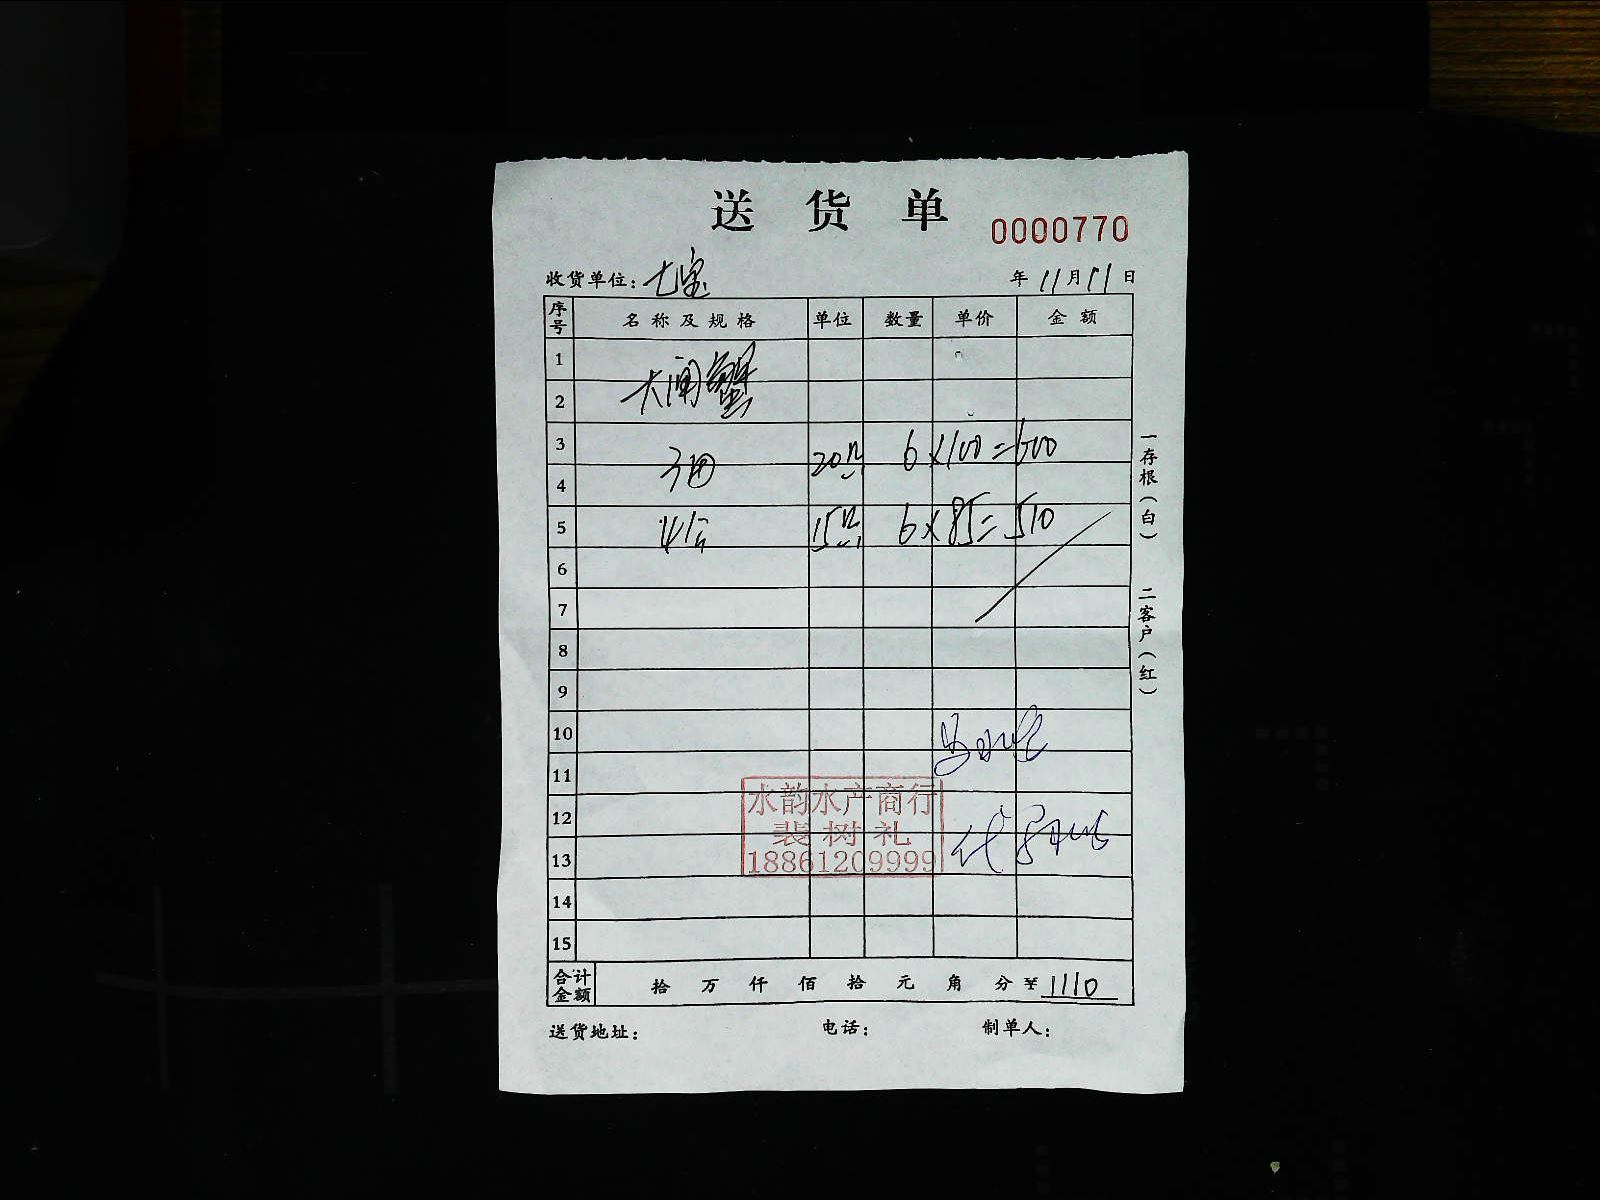 送货单 0000770
收货单位：七宝 年 11 月 11 日
序号 名称及规格 单位 数量 单价 金额
1
2 大闸蟹
3 6 × 100 = 600
4
5 6 × 85 = 510
6
7
8
9
10
11
12
13
14
15
水韵水产商行
裴树礼
18861209999
合计金额 拾 万 仟 佰 拾 元 角 分 ¥ 1110
送货地址： 电话： 制单人：
一存根（白） 二客户（红）